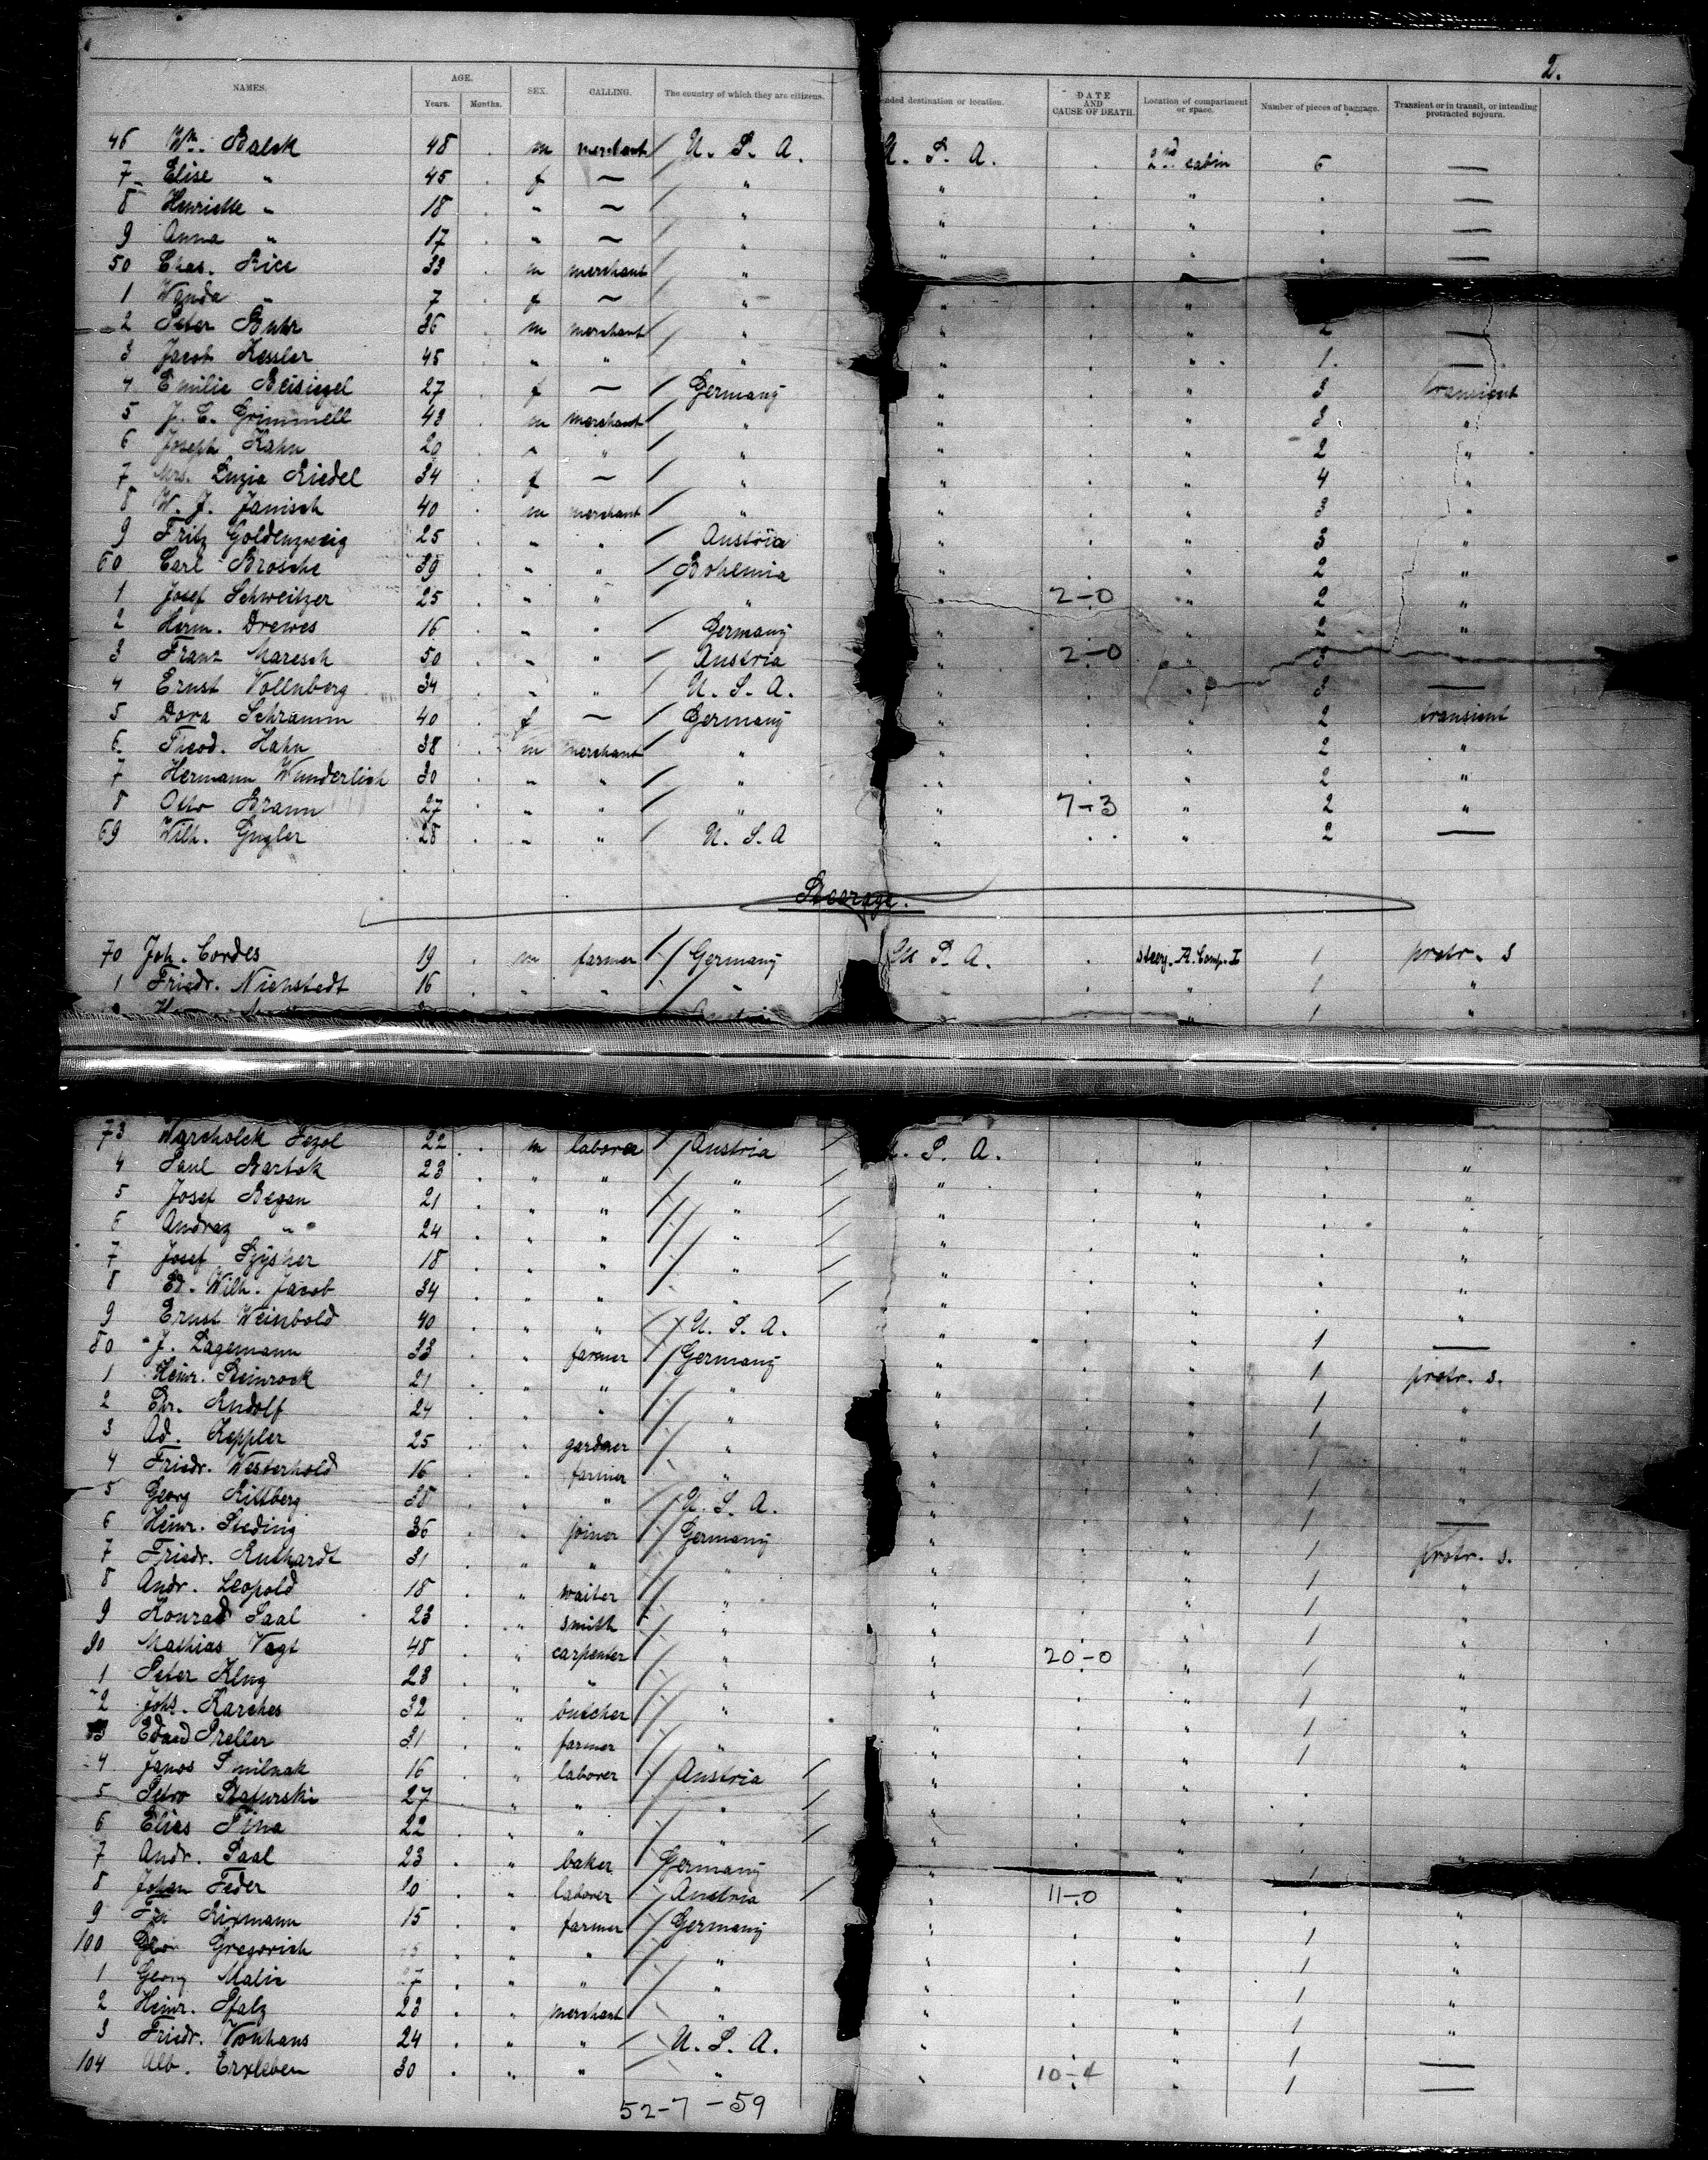 2.
NAMES. AGE. Years. Months. SEX. CALLING. The country of which they are citizens. nded destination or location. DATE AND CAUSE OF DEATH. Location of compartment or space. Number of pieces of baggage. Transient or in transit, or intending protracted sojourn.
46 Wm. Balck 48 m merchant U. S. A. U. S. A. 2nd cabin 6 —
7 Elise " 45 f — " " " —
8 Henriette " 18 " — " " " —
9 Anna " 17 " — " " " —
50 Chas. Rice 33 m merchant " "
1 Wanda " 7 f — " " "
2 Peter Buhr 36 m merchant " " " 2 —
3 Jacob Kessler 45 " " " " " 1. —
4 Emilie Beisiegel 27 f — Germany " " 3 transient
5 J. C. Grimmell 43 m merchant " " " 3 "
6 Joseph Kahn 20 " " " " " 2 "
7 Mrs. Luzia Riedel 34 f — " " " 4 "
8 W. J. Janisch 40 m merchant " " " 3 "
9 Fritz Goldenzweig 25 " " Austria " " 3 "
60 Carl Brosche 39 " " Bohemia " " 2 "
1 Josef Schweitzer 25 " " " " 2-0 " 2 "
2 Herm. Drewes 16 " " Germany " " 2 "
3 Franz Maresch 50 " " Austria " 2-0 " 3
4 Ernst Vollnberg 34 " " U. S. A. " " 3 —
5 Dora Schramm 40 f — Germany " " 2 transient
6 Theod. Hahn 38 m merchant " " " 2 "
7 Hermann Wunderlich 30 " " " " " 2 "
8 Otto Braun 27 " " " " 7-3 " 2 "
69 Wilh. Gugler 28 " " U. S. A " " 2 —
Steerage.
70 Joh. Cordes 19 m farmer Germany U. S. A. Steerg. A. Comp. I 1 protr. s
1 Friedr. Nienstedt 16 " " " " 1 "
" 1 "
73 Warcholek 22 m laborer Austria S. A. " "
4 Paul Bartok 23 " " " " " "
5 Josef Began 21 " " " " " "
6 Andraz " 24 " " " " " "
7 Josef 18 " " " " " "
8 Ed. Wilh. Jacob 34 " " " " " "
9 Ernst Weinbold 40 " " U. S. A. " "
80 J. Lagemann 33 " farmer Germany " " 1 —
1 Heinr. Steinrock 21 " " " " " 1 protr. s.
2 Chr. Rudolf 24 " " " " " 1 "
3 Ad. Keppler 25 " gardner " " " 1 "
4 Friedr. Westerhold 16 " farmer " " " 1 "
5 Georg Rittberg 38 " " U. S. A. " " 1 —
6 Heinr. Steding 36 " joiner Germany " " 1 protr. s.
7 Friedr. Ruthardt 31 " " " " " 1 "
8 Andr. Leopold 18 " waiter " " " 1 "
9 Konrad Saal 23 " smith " " " 1 "
90 Mathias Vogt 48 " carpenter " " 20-0 " 1 "
1 Peter Klug 23 " " " " " 1 "
2 Johs. Karches 32 " butcher " " " 1 "
93 Eduard Preller 31 " farmer " " " 1 "
4 Janos Smilnak 16 " laborer Austria " "
5 Petro 27 " " " "
6 Elias 22 " " " " " "
7 Andr. Saal 23 " baker Germany " " 1
8 Johan Feder 10 " laborer Austria " 11-0 " "
9 Rixmann 15 " farmer Germany " " 1 "
100 Gregorich " " " " " 1 "
1 Georg Malin 7 " " " " " 1 "
2 Heinr. Pfalz 23 " merchant " " " 1 "
3 Friedr. Vonhans 24 " " U. S. A. " " 1 —
104 Alb. Erxleben 30 " " " " 10-4 " 1 —
52-7-59